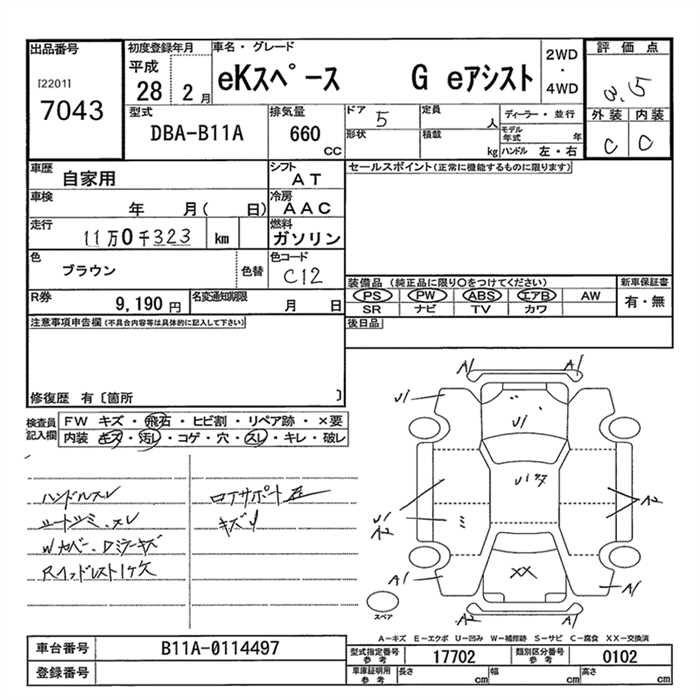 出品番号
[2201]
7043
初度登録年月
平成
28 2月
車名・グレード
eKスペース G eアシスト
2WD
・
4WD
評価点
3.5
外装 内装
C C
型式
DBA-B11A
排気量
660
CC
ドア 5
形状
定員 人
積載 kg
ディーラー・並行
モデル年式 年
ハンドル 左・右
車歴 自家用
シフト AT
車検 年 月( 日)
冷房 AAC
走行 11万0千323 km
燃料 ガソリン
色 ブラウン
色替
色コード C12
R券 9,190円
名変通知期限 月 日
セールスポイント(正常に機能するものに限ります)
装備品(純正品に限り○をつけてください)
PS PW ABS エアB AW
SR ナビ TV カワ
新車保証書
有・無
後日品
注意事項申告欄(不具合内容等は具体的に記入して下さい)
修復歴 有〔箇所 〕
検査員記入欄
FW キズ・飛石・ヒビ割・リペア跡・×要
内装 キズ・汚レ・コゲ・穴・スレ・キレ・破レ
ハンドルスレ
シートシミ、スレ
Wカバー、Dミラーキズ
Rヘッドレスト1ケ欠
キズU
A1 A1
U1 A1
U1
U1
A2
U1
A2
A1 XX A1
A2 A2
スペア
A-キズ E-エクボ U-凹み W-補修跡 S-サビ C-腐食 XX-交換済
車台番号 B11A-0114497
登録番号
型式指定番号参考 17702
類別区分番号参考 0102
車庫証明用参考 長さ cm 幅 cm 高さ cm